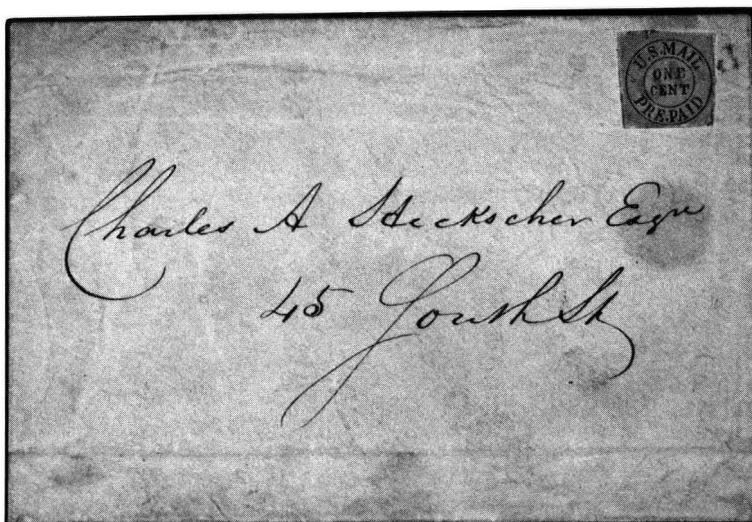 U.S.MAIL
ONE
CENT
PRE-PAID
Charles A Heckscher Esqre
45 South St